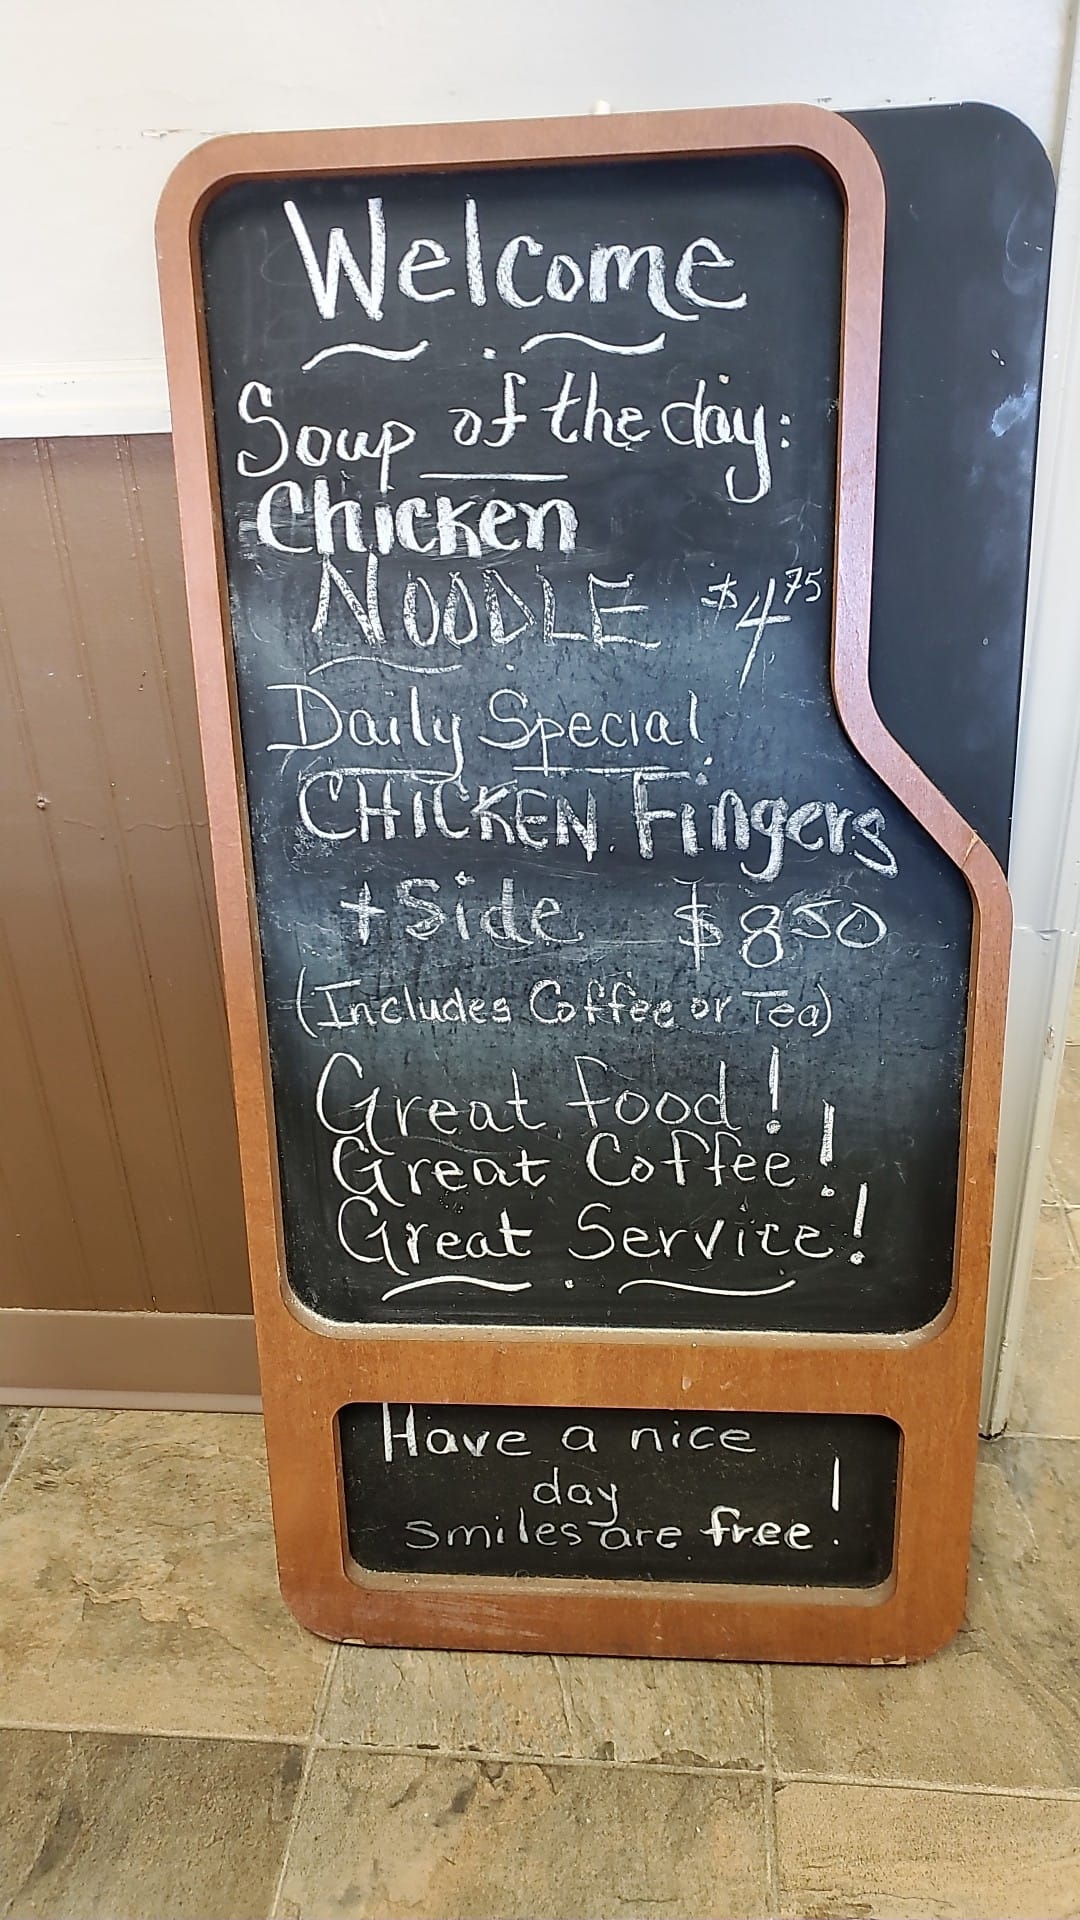 Welcome
Soup of the day:
Chicken
NOODLE $4.75
Daily Special
CHICKEN Fingers
+ Side $8.50
(Includes Coffee or Tea)
Great food!
Great Coffee!
Great Service!
Have a nice
day
Smiles are free!